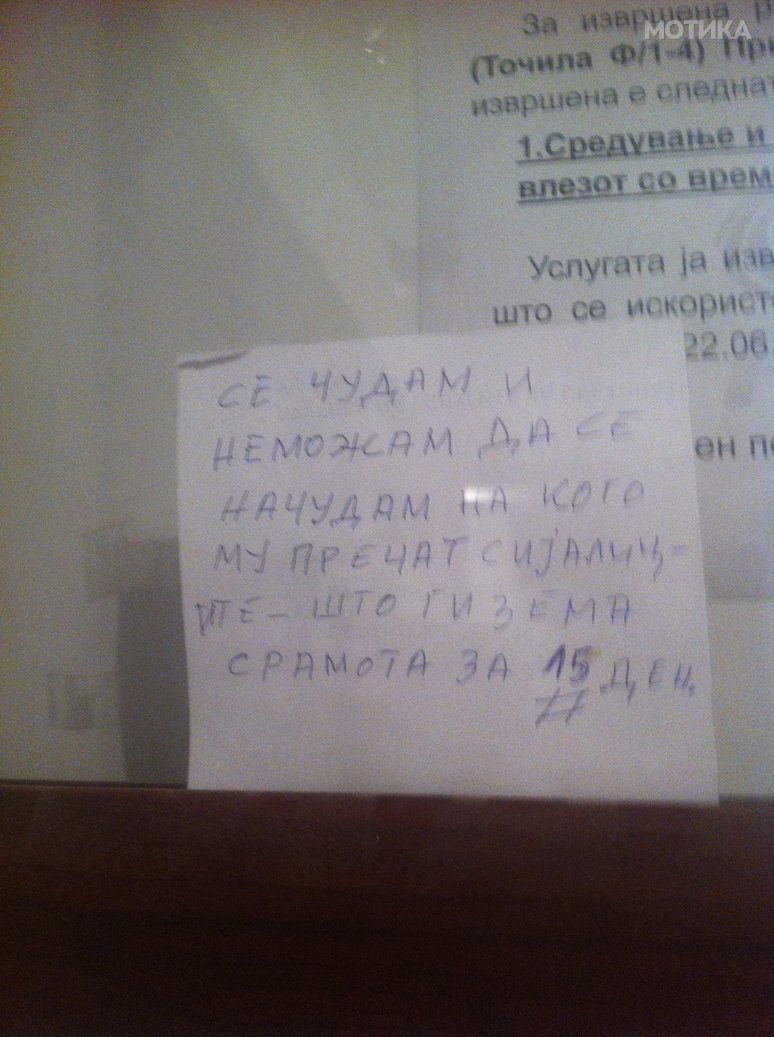 МОТИКА
За извршена
(Точила Ф/1-4)
извршена е
1.Средување и
влезот со
Услугата ја
што се
22.06.
СЕ ЧУДАМ И
НЕМОЖАМ ДА СЕ
НАЧУДАМ НА КОГО
МУ ПРЕЧАТ СИЈАЛИЦ-
ИТЕ - ШТО ГИ ЗЕМА
СРАМОТА ЗА 15 ДЕН.